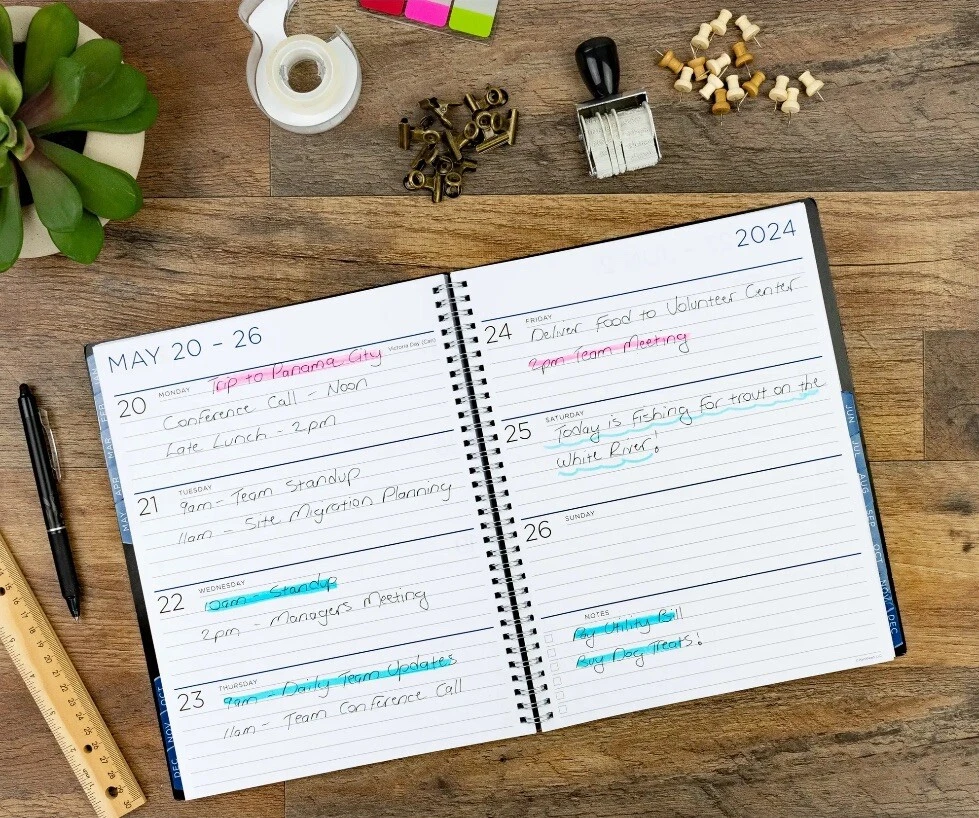 MAY 20 - 26
MONDAY
Trip to Panama City
Victoria Day (Can)
20
Conference Call - Noon
Late Lunch - 2pm
TUESDAY
21
9am - Team Standup
11am - Site Migration Planning
WEDNESDAY
22
10am - Standup
2pm - Managers Meeting
THURSDAY
23
9am - Daily Team Updates
11am - Team Conference Call
2024
FRIDAY
24
Deliver Food to Volunteer Center
2pm Team Meeting
SATURDAY
25
Today is Fishing For trout on the
White River!
SUNDAY
26
NOTES
Pay Utility Bill
Buy Dog Treats!
MAR
APR
MAY
OCT
NOV
DEC
JUN
JUL
AUG
SEP
OCT
NOV
DEC
15
16
17
18
19
20
21
22
23
24
25
26
27
28
29
30